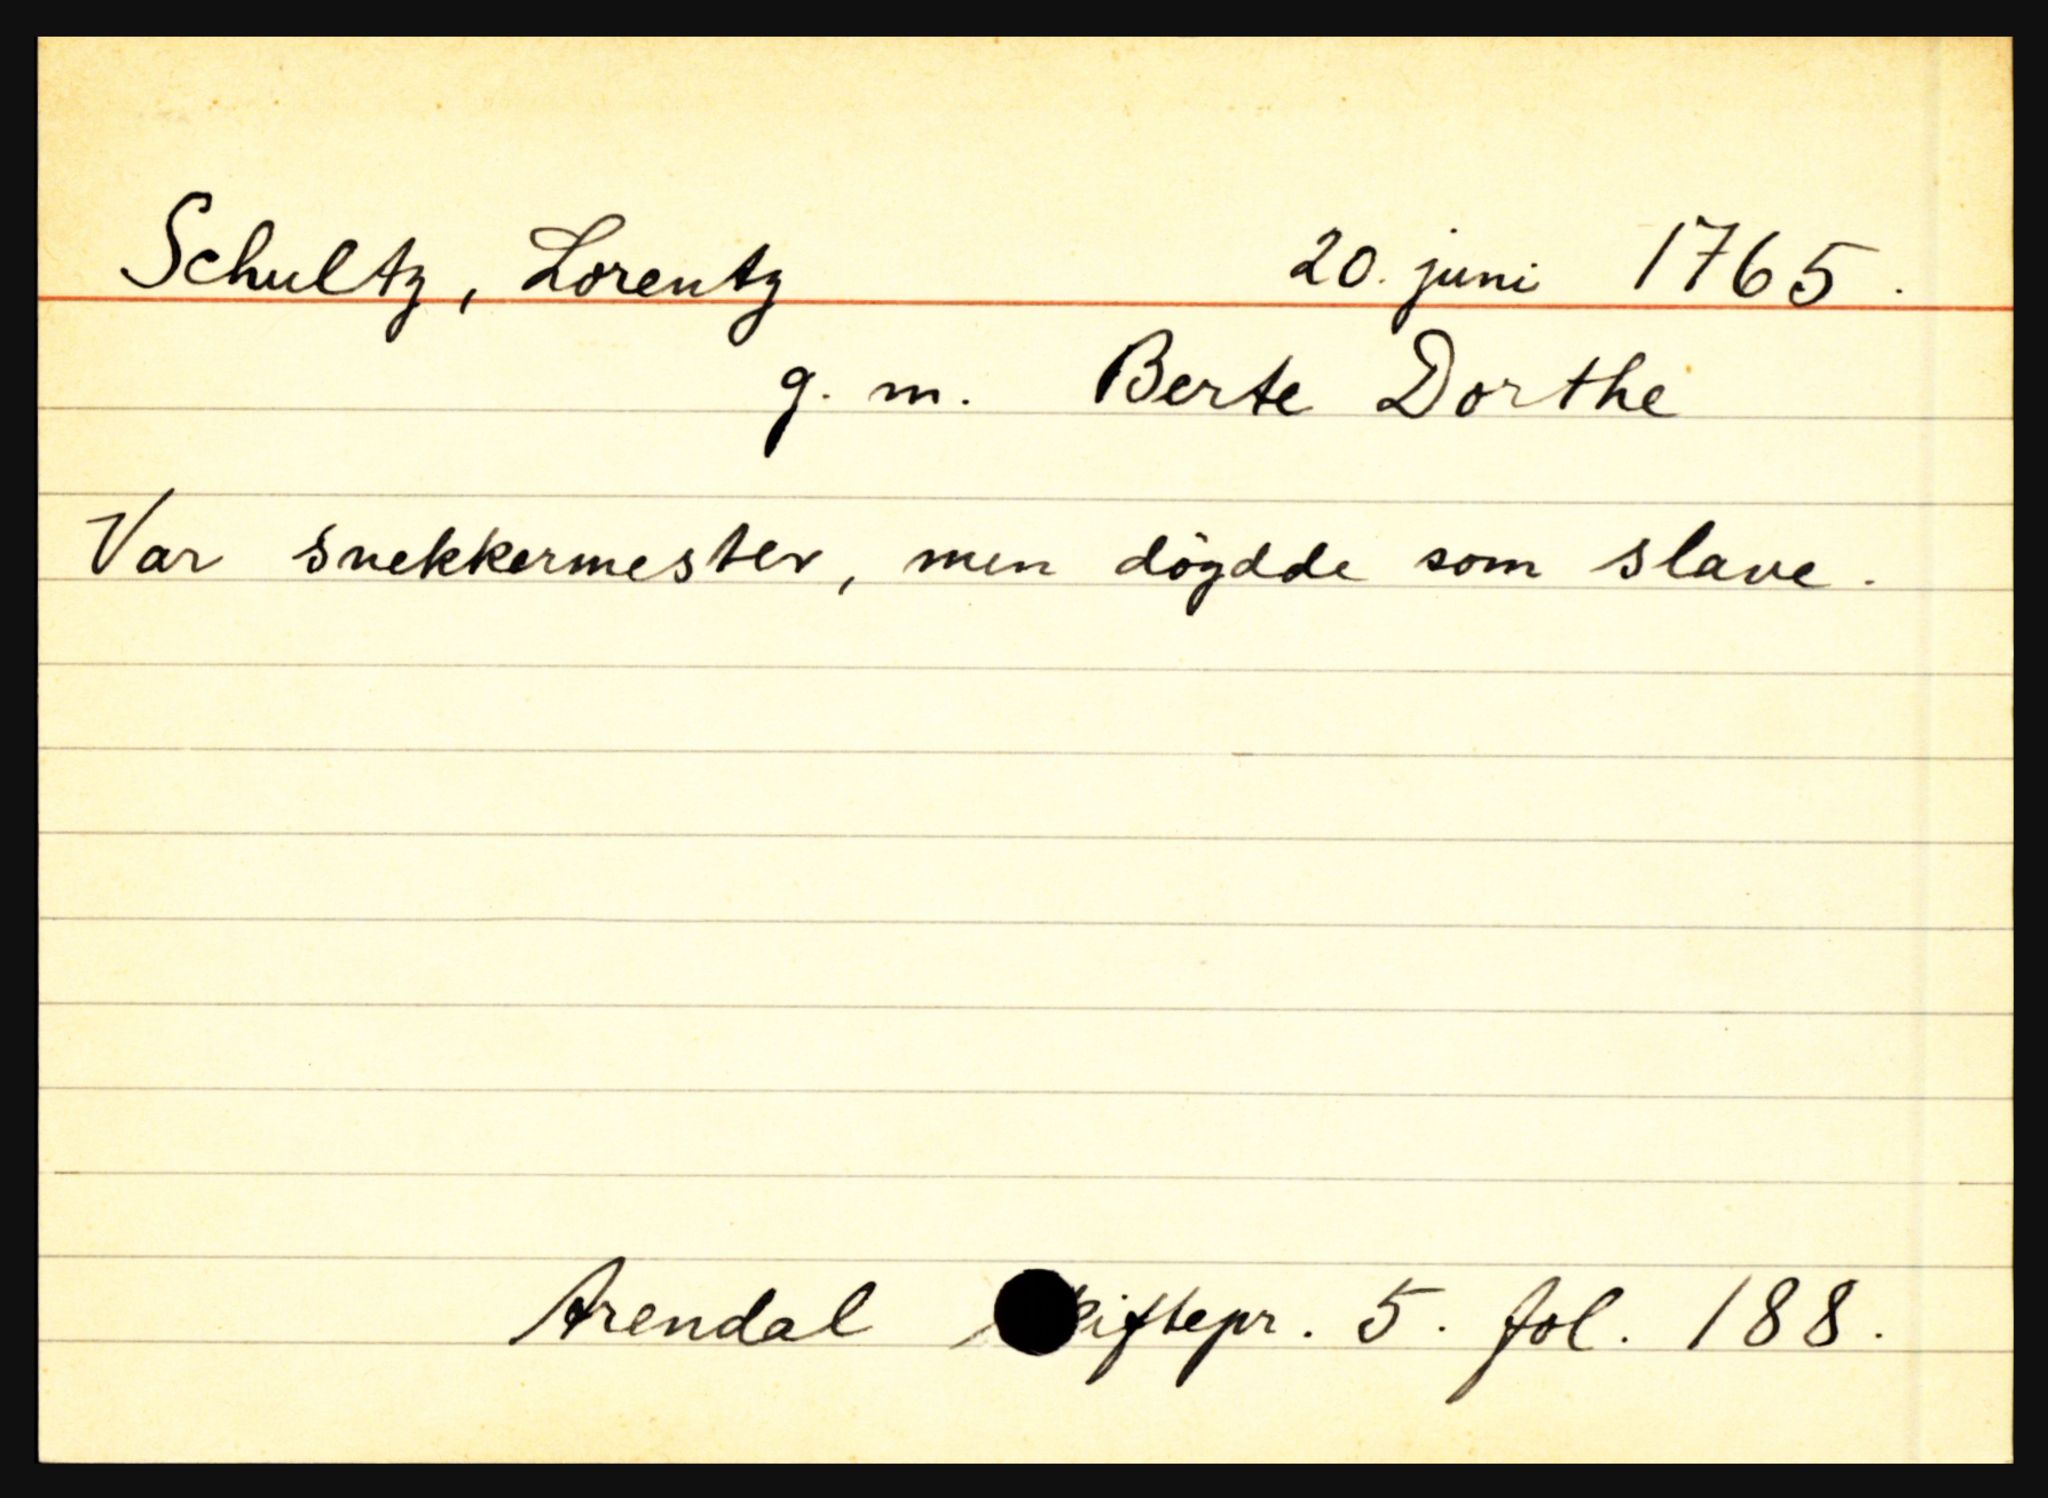 Schultz, Lorentz 20. juni 1765.
g. m. Berte Dorthe
Var snekkermester, men döydde som slave.
Arendal skiftepr. 5. fol. 188.